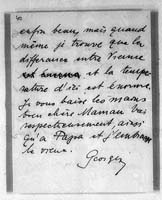 enfin beau, mais quand
même je trouve que la
différence entre Vienne
et la tempe
rature d'ici est énorme.
Je vous baise les mains
bien chère Maman très
respectueusement ainsi
qu'à Papa et j'embrasse
le vieux.
Georges